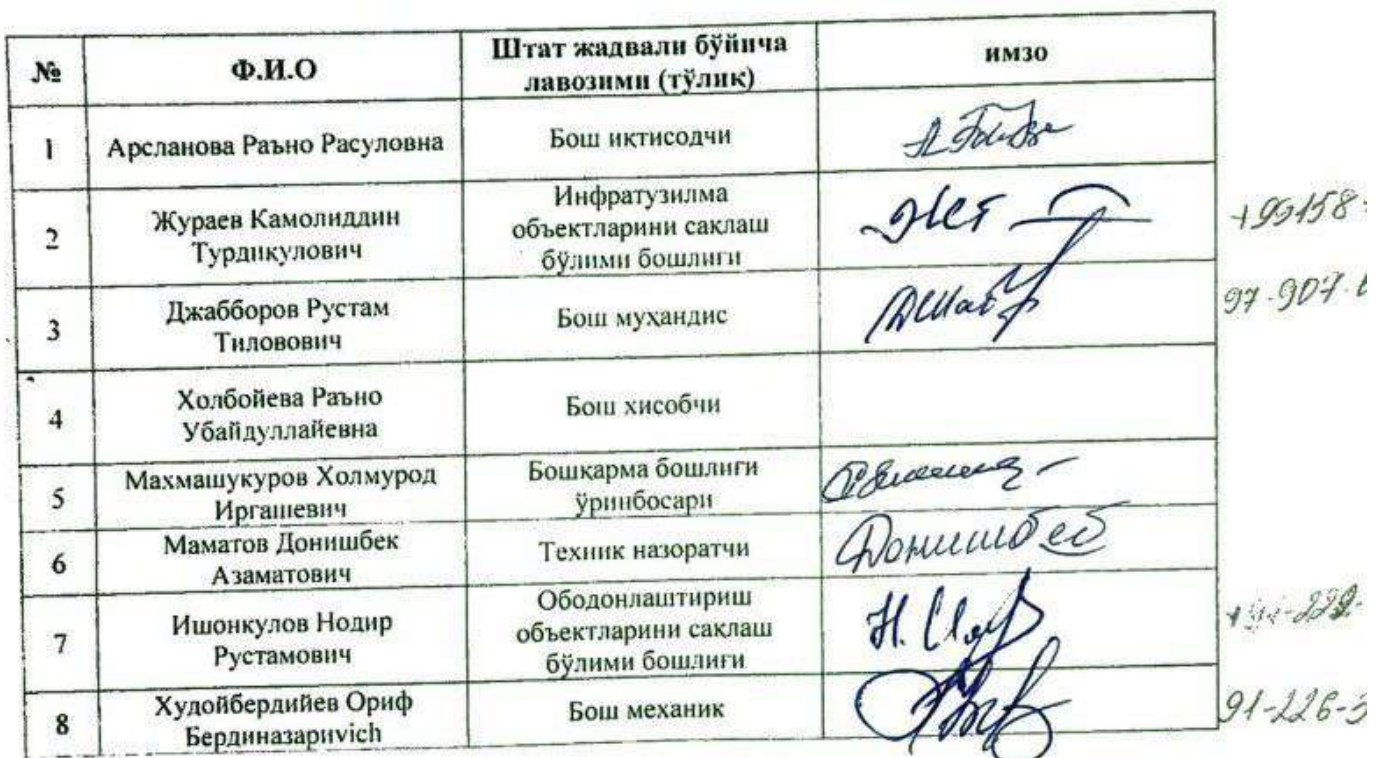 №
Ф.И.О
Штат жадвали бўйича
лавозими (тўлиқ)
имзо
1
Арсланова Раъно Расуловна
Бош иқтисодчи
2
Жураев Камолиддин
Турдикулович
Инфратузилма
объектларини сақлаш
бўлими бошлиғи
3
Джабборов Рустам
Тиловович
Бош муҳандис
97-907-
4
Холбойева Раъно
Убайдуллайевна
Бош хисобчи
5
Махмашукуров Холмурод
Иргашевич
Бошқарма бошлиғи
ўринбосари
6
Маматов Донишбек
Азаматович
Техник назоратчи
Донишбек
7
Ишонкулов Нодир
Рустамович
Ободонлаштириш
объектларини сақлаш
бўлими бошлиғи
8
Худойбердийев Ориф
Бердиназариvich
Бош механик
91-226-3